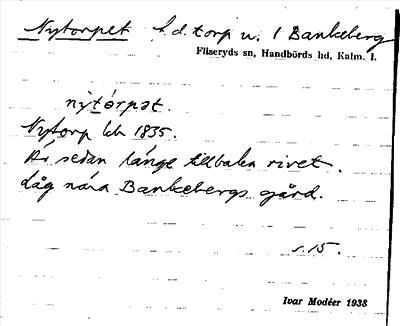 Nytorpet f.d. torp u. 1 Bankeberg
Fliseryds sn, Handbörds hd, Kalm. l.
nỳtórpət.
Nytorp lk 1835.
Är sedan länge tillbaka rivet.
Låg nära Bankebergs gård.
s. 15.
Ivar Modéer 1938